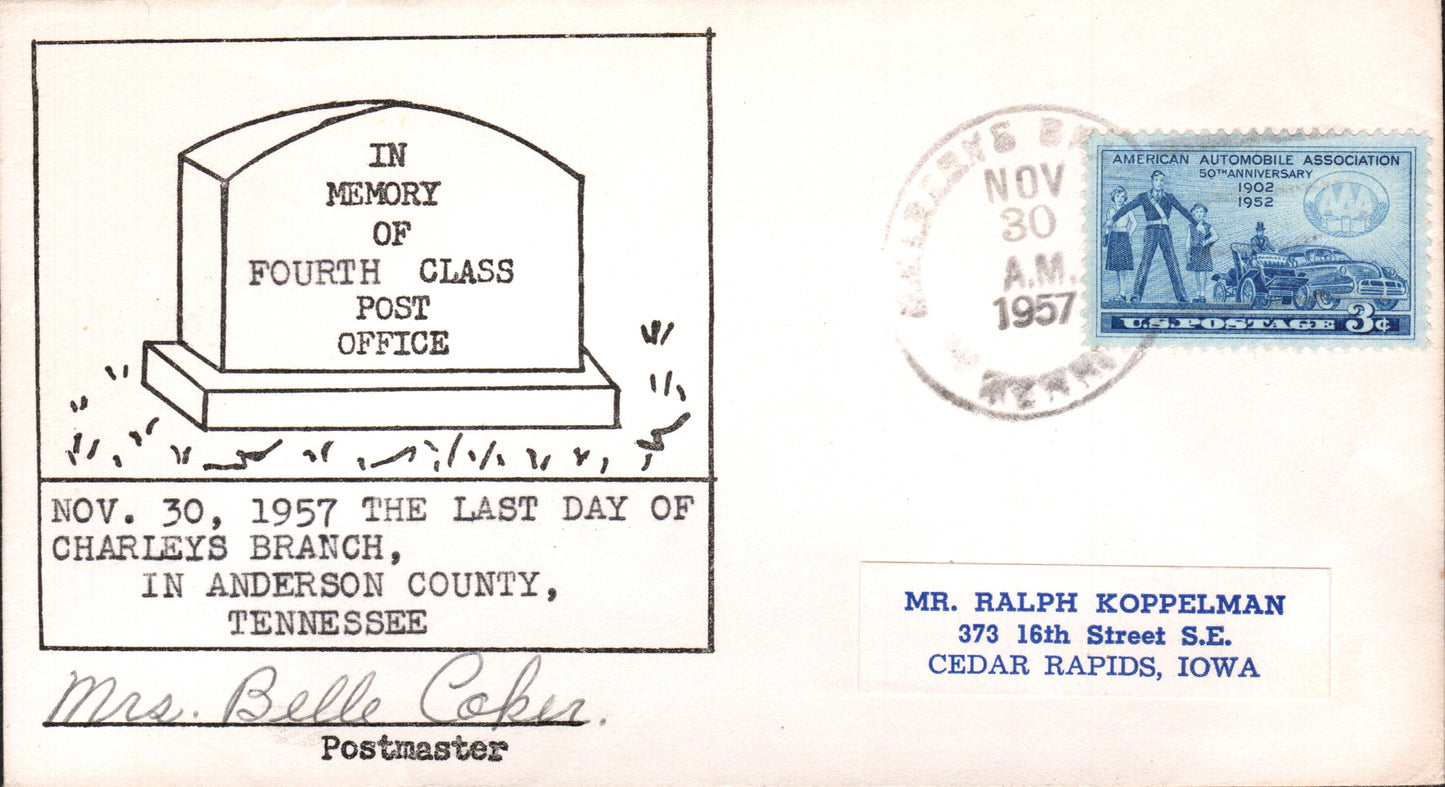 IN
MEMORY
OF
FOURTH CLASS
POST
OFFICE
NOV. 30, 1957 THE LAST DAY OF
CHARLEYS BRANCH,
IN ANDERSON COUNTY,
TENNESSEE
Mrs. Belle Coker.
Postmaster
CHARLEYS
NOV
30
A.M.
1957
AMERICAN AUTOMOBILE ASSOCIATION
50TH ANNIVERSARY
1902
1952
AAA
U.S. POSTAGE 3¢
MR. RALPH KOPPELMAN
373 16th Street S.E.
CEDAR RAPIDS, IOWA